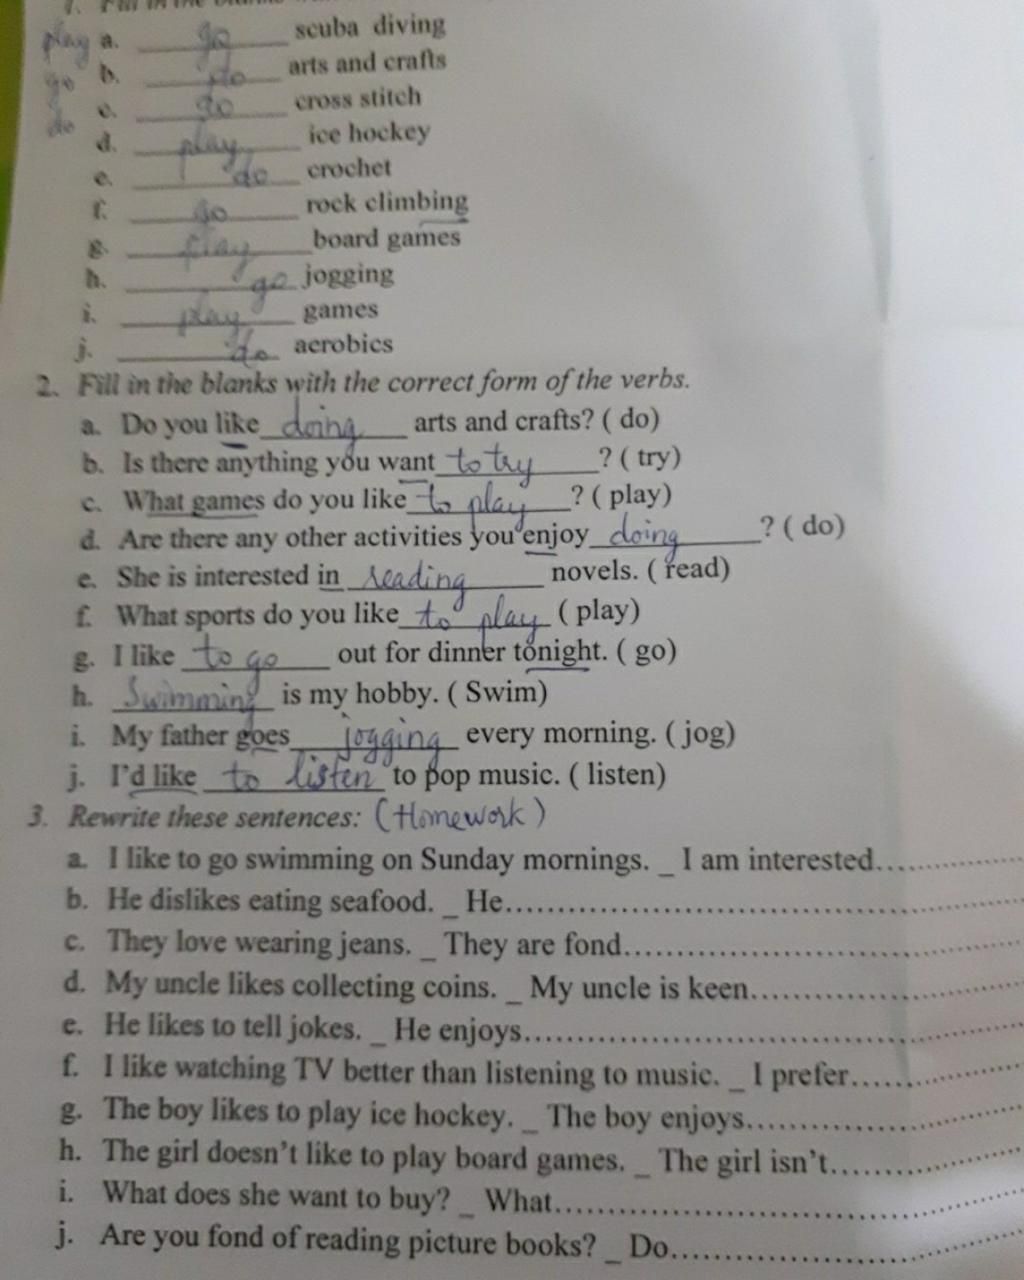 1. Fill in the blanks
play a. go scuba diving
go b. do arts and crafts
do c. do cross stitch
d. play ice hockey
e. do crochet
f. go rock climbing
g. play board games
h. go jogging
i. play games
j. do aerobics
2. Fill in the blanks with the correct form of the verbs.
a. Do you like doing arts and crafts? ( do)
b. Is there anything you want to try ? ( try)
c. What games do you like to play ? ( play)
d. Are there any other activities you enjoy doing ? ( do)
e. She is interested in reading novels. ( read)
f. What sports do you like to play ( play)
g. I like to go out for dinner tonight. ( go)
h. Swimming is my hobby. ( Swim)
i. My father goes jogging every morning. ( jog)
j. I'd like to listen to pop music. ( listen)
3. Rewrite these sentences: (Homework)
a. I like to go swimming on Sunday mornings. _ I am interested....................
b. He dislikes eating seafood. _ He............................................................
c. They love wearing jeans. _ They are fond..............................................
d. My uncle likes collecting coins. _ My uncle is keen...............................
e. He likes to tell jokes. _ He enjoys..........................................................
f. I like watching TV better than listening to music. _ I prefer....................
g. The boy likes to play ice hockey. _ The boy enjoys................................
h. The girl doesn't like to play board games. _ The girl isn't......................
i. What does she want to buy? _ What......................................................
j. Are you fond of reading picture books? _ Do.........................................